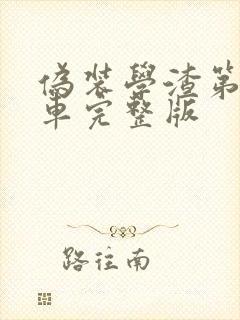 偽裝學渣第
車完整版
路往南